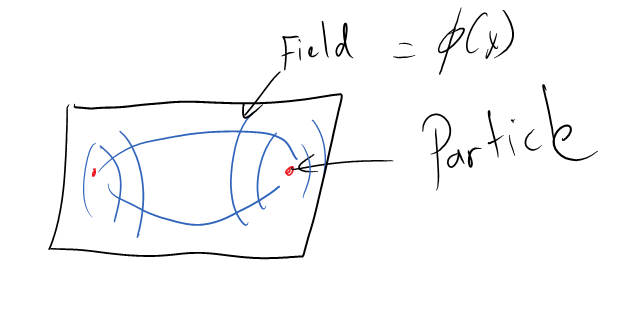 Field = ϕ(x)
Particle